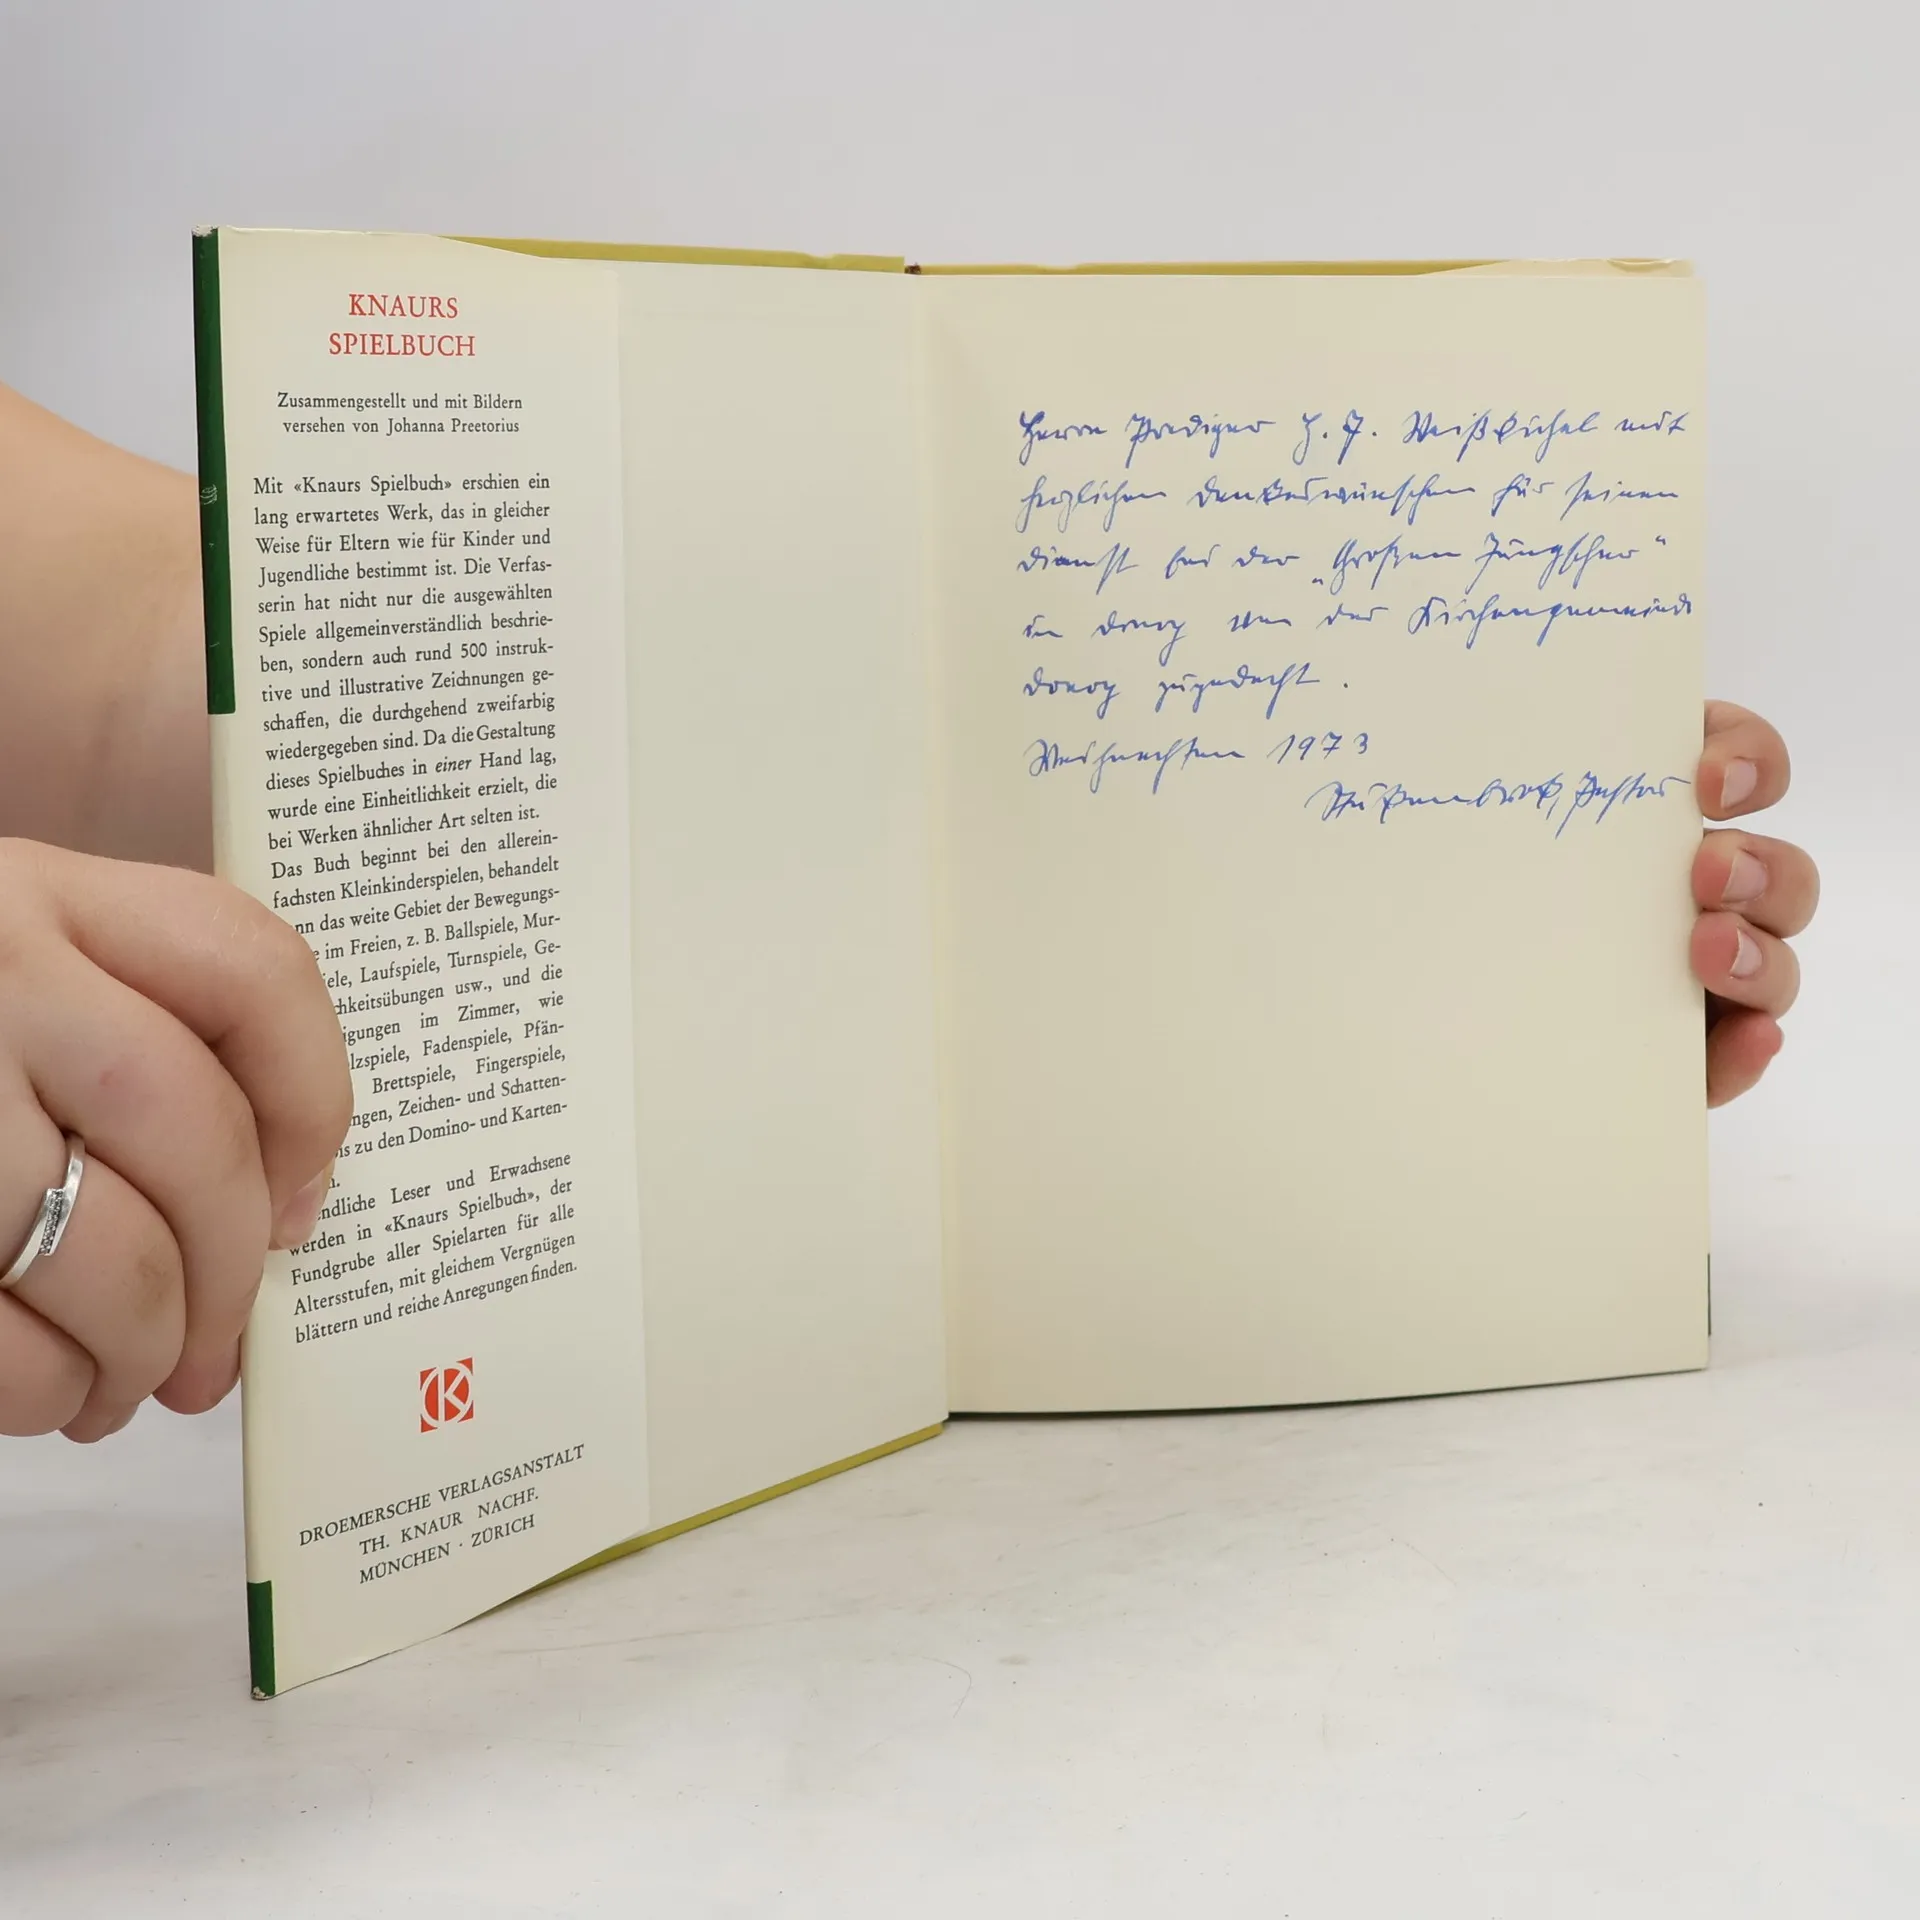 KNAURS
SPIELBUCH
Zusammengestellt und mit Bildern
versehen von Johanna Preetorius
Mit «Knaurs Spielbuch» erschien ein
lang erwartetes Werk, das in gleicher
Weise für Eltern wie für Kinder und
Jugendliche bestimmt ist. Die Verfas-
serin hat nicht nur die ausgewählten
Spiele allgemeinverständlich beschrie-
ben, sondern auch rund 500 instruk-
tive und illustrative Zeichnungen ge-
schaffen, die durchgehend zweifarbig
wiedergegeben sind. Da die Gestaltung
dieses Spielbuches in einer Hand lag,
wurde eine Einheitlichkeit erzielt, die
bei Werken ähnlicher Art selten ist.
Das Buch beginnt bei den allerein-
fachsten Kleinkinderspielen, behandelt
nn das weite Gebiet der Bewegungs-
e im Freien, z. B. Ballspiele, Mur-
iele, Laufspiele, Turnspiele, Ge-
hkeitsübungen usw., und die
igungen im Zimmer, wie
lzspiele, Fadenspiele, Pfän-
Brettspiele, Fingerspiele,
ngen, Zeichen- und Schatten-
is zu den Domino- und Karten-
n.
ndliche Leser und Erwachsene
werden in «Knaurs Spielbuch», der
Fundgrube aller Spielarten für alle
Altersstufen, mit gleichem Vergnügen
blättern und reiche Anregungen finden.
K
DROEMERSCHE VERLAGSANSTALT
TH. KNAUR NACHF.
MÜNCHEN · ZÜRICH
Herrn Prediger H. J. mit
herzlichen für seinen
Dienst bei der „Großen Jungschar"
in von der Kirchengemeinde
zugedacht.
Weihnachten 1973
Pastor